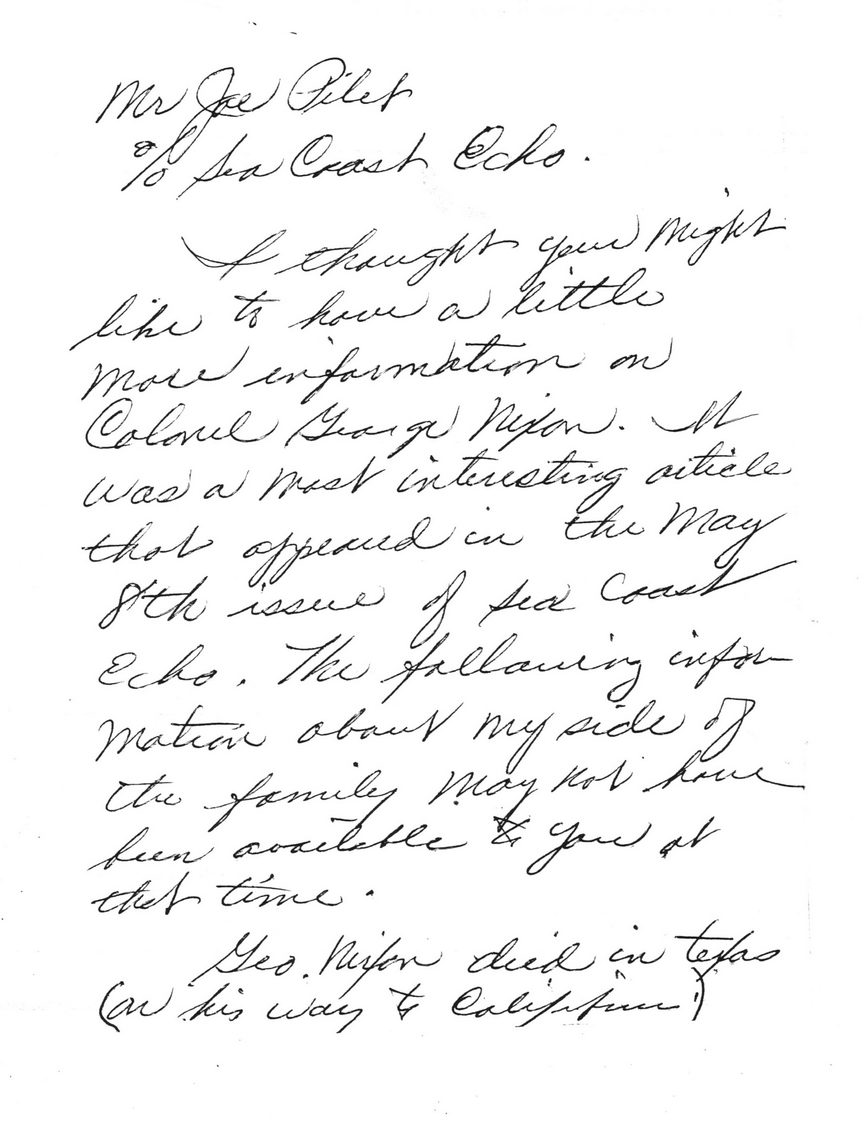 Mr Joe Pilet
% Sea Coast Echo.
I thought you might
like to have a little
more information on
Colonel George Nixon. It
was a most interesting article
that appeared in the May
8th issue of Sea Coast
Echo. The following infor
mation about my side of
the family may not have
been available to you at
that time.
Geo. Nixon died in Texas
(on his way to California)